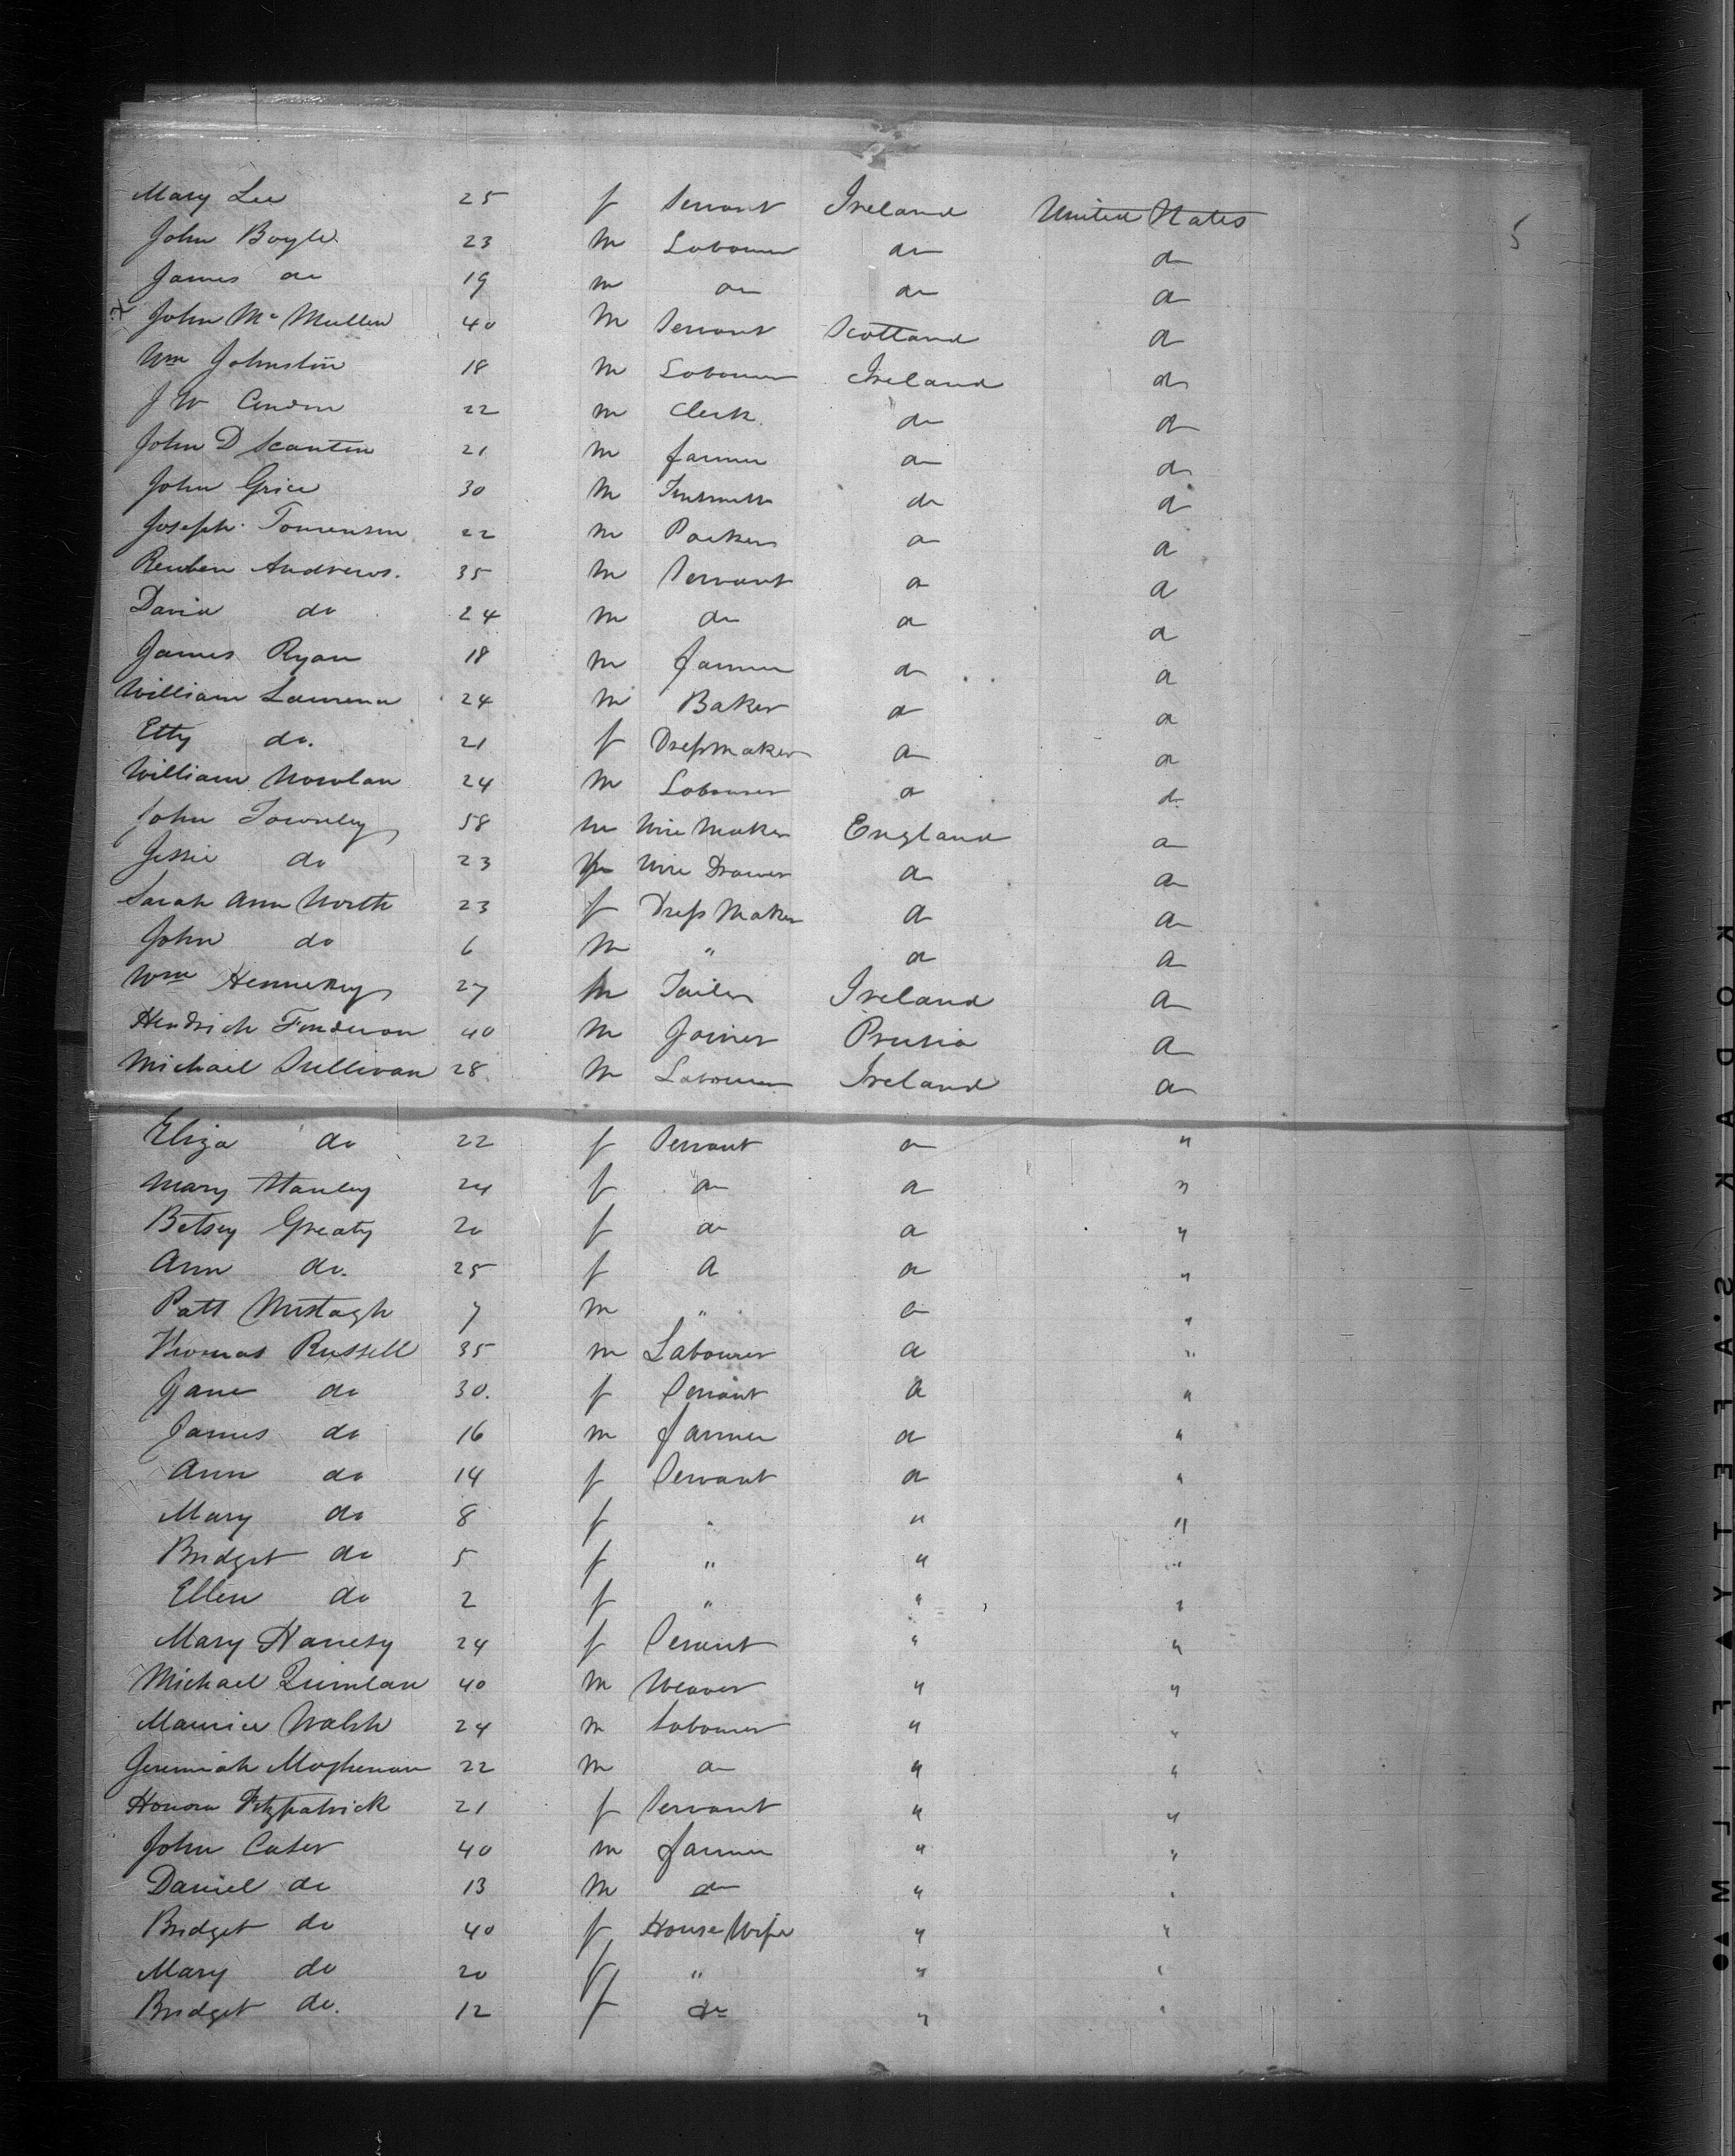 Mary Lee 25 f Servant Ireland United States 5
John Boyle 23 m Labourer do do
James do 19 m do do do
John McMullen 40 m Servant Scotland do
Wm Johnston 18 m Labourer Ireland do
J W 22 m Clerk do do
John D Scanten 21 m farmer do do
John Grice 30 m do do
Joseph Tomenson 22 m Packer do do
Reuben Andrews. 35 m Servant do do
David do 24 m do do do
James Ryan 18 m farmer do do
William Laurence 24 m Baker do do
Etty do. 21 f Dressmaker do do
William Nowlan 24 m Labourer do do
John Townley 58 m Wire Maker England do
Jessie do 23 Wire Drawer do do
Sarah Ann North 23 f Dress Maker do do
John do 6 m " do do
Wm Hennekey 27 m Tailor Ireland do
Hendrich 40 m Joiner Prusia do
Michael Sullivan 28 m Labourer Ireland do
Eliza do 22 f Servant do "
Mary Stanley 24 f do do "
Betsey Greaty 20 f do do "
Ann do. 25 f do do "
Patt Murtagh 7 m " do "
Thomas Russell 35 m Labourer do "
Jane do 30. f Servant do "
James do 16 m farmer do "
Ann do 14 f Servant do "
Mary do 8 f " " "
Bridget do 5 f " " "
Ellen do 2 f " " "
Mary 24 f Servant " "
Michael Quinlan 40 m Weaver " "
Maurice Walsh 24 m Labourer " "
Jeremiah 22 m do " "
Honora Fitzpatrick 21 f Servant " "
John Cater 40 m farmer " "
Daniel do 13 m do " "
Bridget do 40 f House Wife " "
Mary do 20 f " " "
Bridget do. 12 f do " "
KODAK'S.AFETY▲FILM▲●